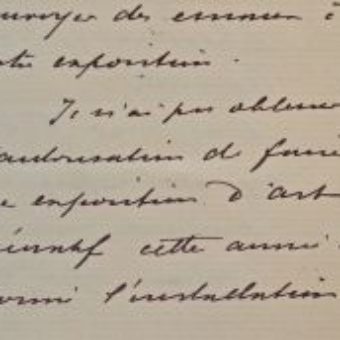 envoyer des émaux à
cette exposition.
Je n'ai pu obtenir
autorisation de faire
exposition d'art
cette année
l'installation